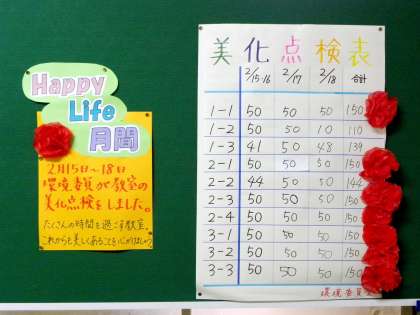 Happy
Life
月間
2月15日～18日
環境委員が教室の
美化点検をしました。
たくさんの時間を過ごす教室。
これからも美しくあることを心がけましょう
美化点検表
2/15・16 2/17 2/18 合計
1-1 50 50 50 150
1-2 50 50 10 110
1-3 41 50 48 139
2-1 50 50 50 150
2-2 44 50 50 144
2-3 50 50 50 150
2-4 50 50 50 150
3-1 50 50 50 150
3-2 50 50 50 150
3-3 50 50 50 150
環境委員会